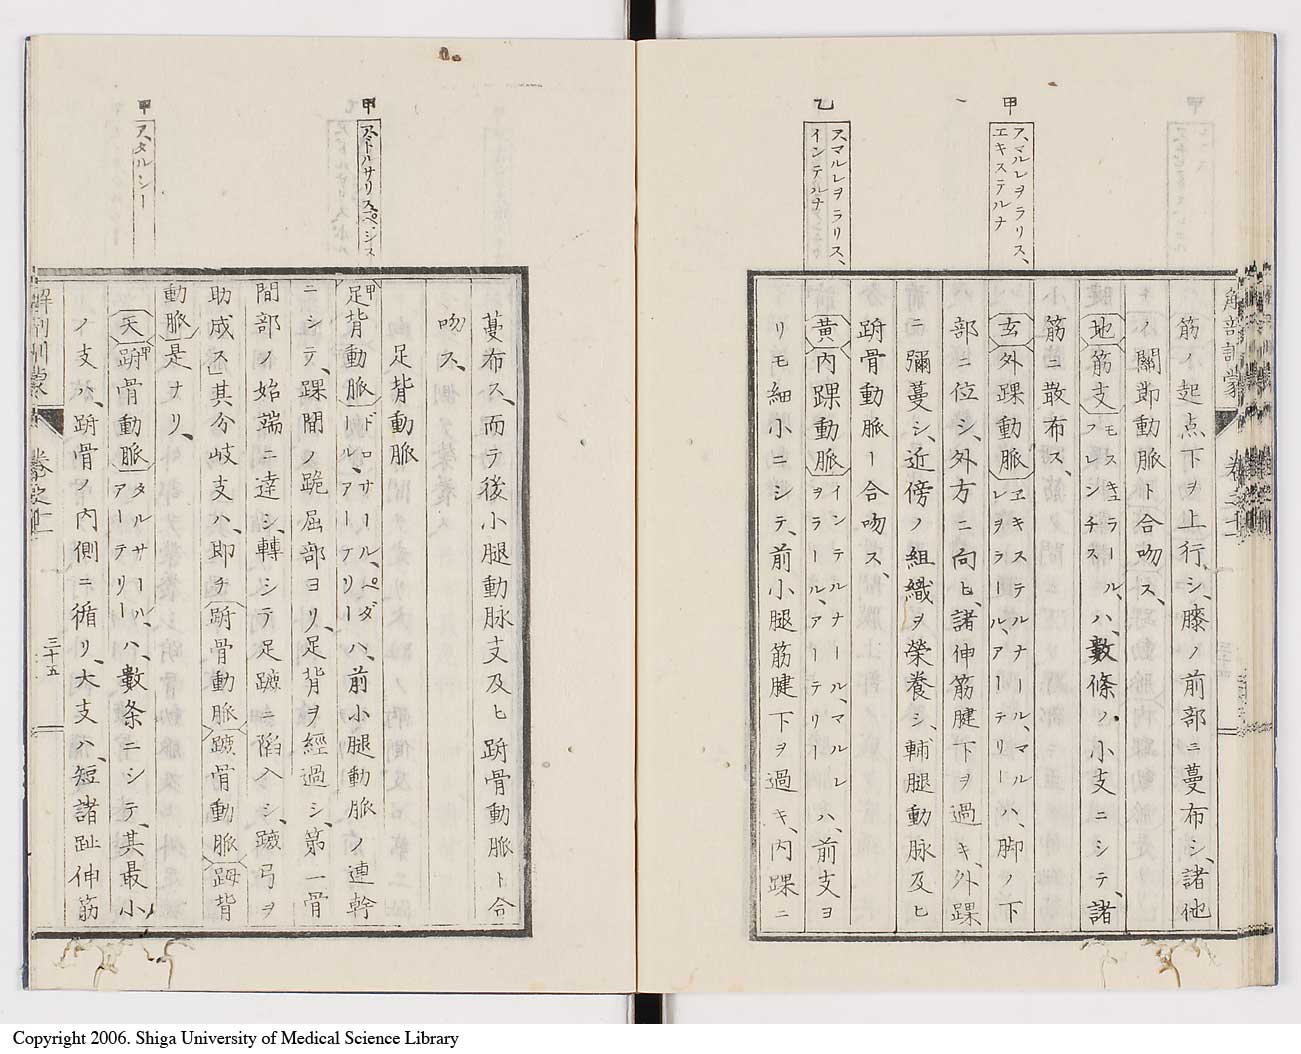 甲
スマルレヲラリス、
エキステルナ
乙
スマルレヲラリス、
インテルナ
解剖訓蒙
卷之十
筋ノ起点下ヲ上行シ、膝ノ前部ニ蔓布シ、諸他
ノ關節動脈ト合吻ス、
地筋支モスキュラール、フレンチス ハ、數條ノ小支ニシテ、諸
筋ニ散布ス、
玄外踝動脈ヱキステルナール、マルレヲラール、アーテリー ハ、脚ノ下
部ニ位シ、外方ニ向ヒ、諸伸筋腱下ヲ過キ、外踝
ニ彌蔓シ、近傍ノ組織ヲ榮養シ、輔腿動脉及ヒ
跗骨動脈ー合吻ス、
黄内踝動脈インテルナール、マルレヲラール、アーテリー ハ、前支ヨ
リモ細小ニシテ、前小腿筋腱下ヲ過キ、内踝ニ
甲
アトルサリス、ペジス
甲
ア、タルシー
蔓布ス、而テ後小腿動脉支及ヒ跗骨動脈ト合
吻ス、
足背動脈
甲足背動脈ドロサール、ペダール、アーテリー ハ、前小腿動脈ノ連幹
ニシテ、踝間ノ跪屈部ヨリ、足背ヲ經過シ、第一骨
間部ノ始端ニ達シ、轉シテ足蹠ニ陷入シ、蹠弓ヲ
助成ス」其分岐支ハ、即チ跗骨動脈蹠骨動脈𧿹背
動脈是ナリ、
天甲跗骨動脈タルサール、アーテリー ハ、數条ニシテ、其最小
ノ支ハ、跗骨ノ内側ニ循リ、大支ハ、短諸趾伸筋
解剖訓蒙
卷之十
三十五
Copyright 2006. Shiga University of Medical Science Library